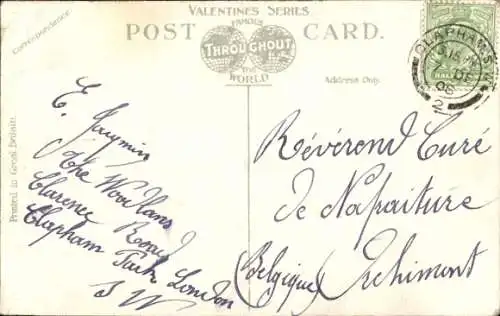 VALENTINES SERIES.
FAMOUS
POST CARD.
THROUGHOUT
THE WORLD
Correspondence.
Address Only.
Printed in Great Britain.
HALF
CLAPHAM. S.W.
DE
06
2
E.
The Woodlands
Clarence Road
Clapham Park London
S W
Révérend Curé
de
(Belgique)